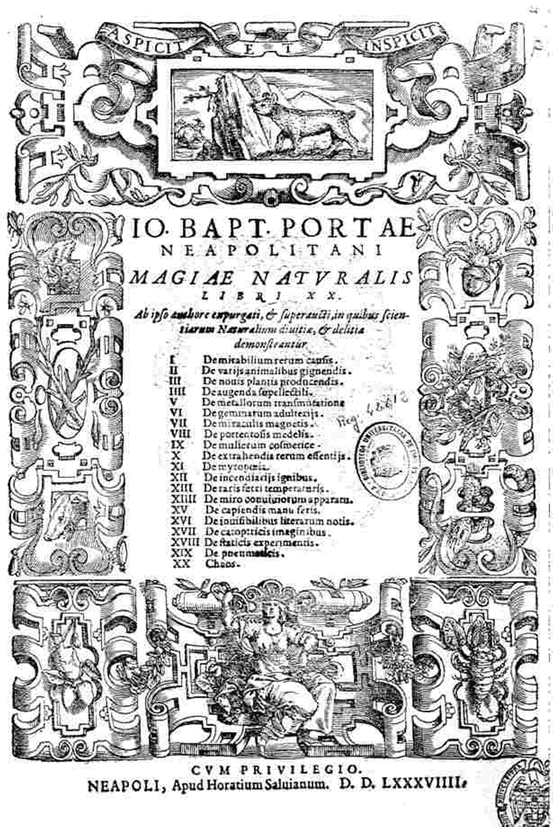 ASPICIT ET INSPICIT
IO. BAPT. PORTAE
NEAPOLITANI
MAGIAE NATVRALIS
LIBRI XX.
Ab ipso authore expurgati, & superaucti, in quibus scien-
tiarum Naturalium diuitiæ, & delitiæ
demonstrantur.
I De mirabilium rerum causis.
II De varijs animalibus gignendis.
III De nouis plantis producendis.
IIII De augenda supellectili.
V De metallorum transmutatione
VI De gemmarum adulterijs.
VII De miraculis magnetis.
VIII De portentosis medelis.
IX De mulierum cosmetice.
X De extrahendis rerum essentijs.
XI De myropoeia.
XII De incendiarijs ignibus.
XIII De raris ferri temperaturis.
XIIII De miro conuiuiorum apparatu.
XV De capiendis manu feris.
XVI De inuisibilibus literarum notis.
XVII De catoptricis imaginibus.
XVIII De staticis experimentis.
XIX De pneumaticis.
XX Chaos.
Reg. 48612
CVM PRIVILEGIO.
NEAPOLI, Apud Horatium Saluianum. D. D. LXXXVIIII.